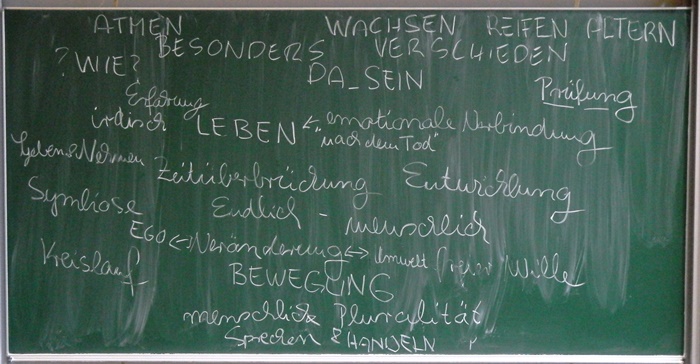 ATHMEN WACHSEN REIFEN ALTERN
BESONDERS VERSCHIEDEN
? WIE?
DA_SEIN
Prüfung
Erfahrung
irdisch LEBEN <- emotionale Verbindung
"nach dem Tod"
Geben & Nehmen
Zeitüberbrückung Entwicklung
Symbiose
Endlich - menschlich
EGO <-> Veränderung <-> Umwelt freier Wille
Kreislauf
BEWEGUNG
menschliche Pluralität
Sprechen & HANDELN